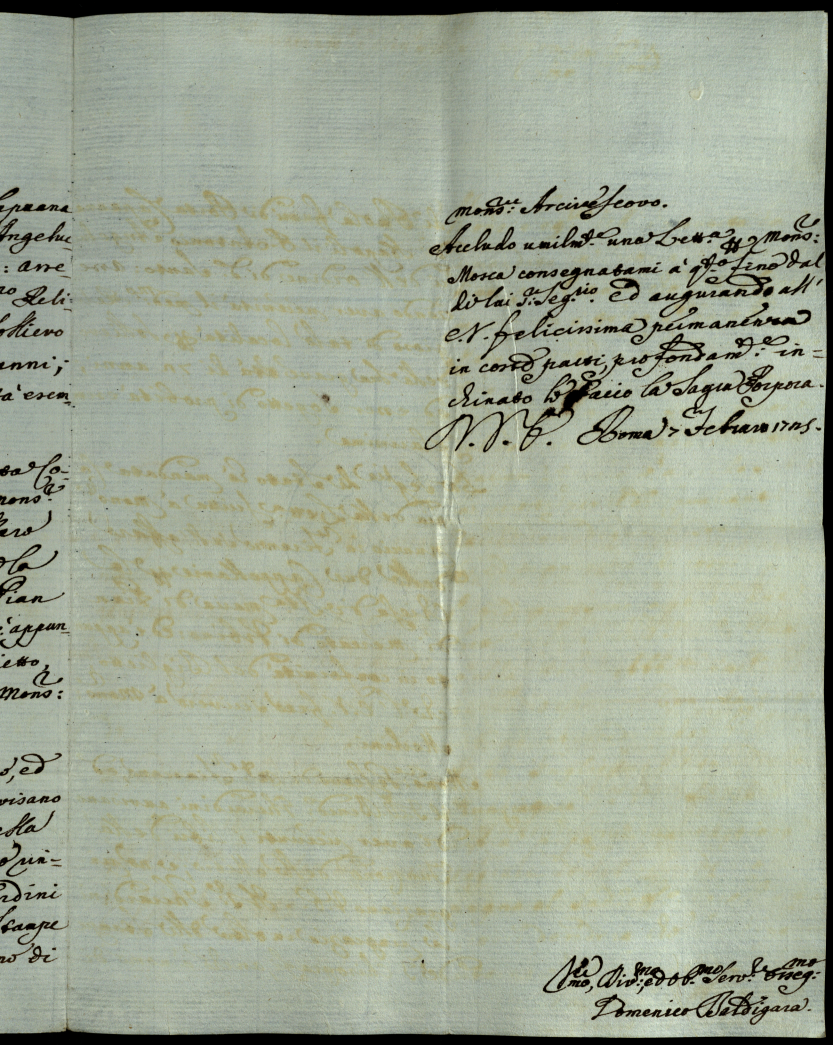 apuana
Angelu
: arre
no Reli:
ollievo
anni;
ta' esem
Co-
mons:
aro
la
Pian
appun
ietto,
Mons:
o, ed
visano
ella
un=
rdini
stampe
no di
mons:re Arcivescovo.
Accludo umilm:te una Lett:a p Mons:
Mosca consegnatami à qto fine dal
di lui Seg:rio. Ed augurando all'
E.V. felicissima permanenza
in coteste parti, profondam:te in=
chinato le bacio la Sagra Porpora.
V. E. Roma 7 Febraro 1725.
Div:mo, ed Ob:mo Serv:re osseq:mo
Domenico Baldigara.